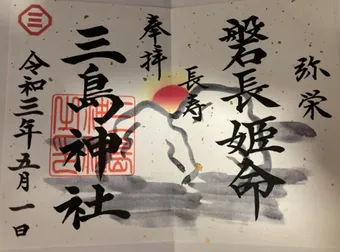 弥栄
磐長姫命
長寿
奉拝
三島神社
令和三年五月一日